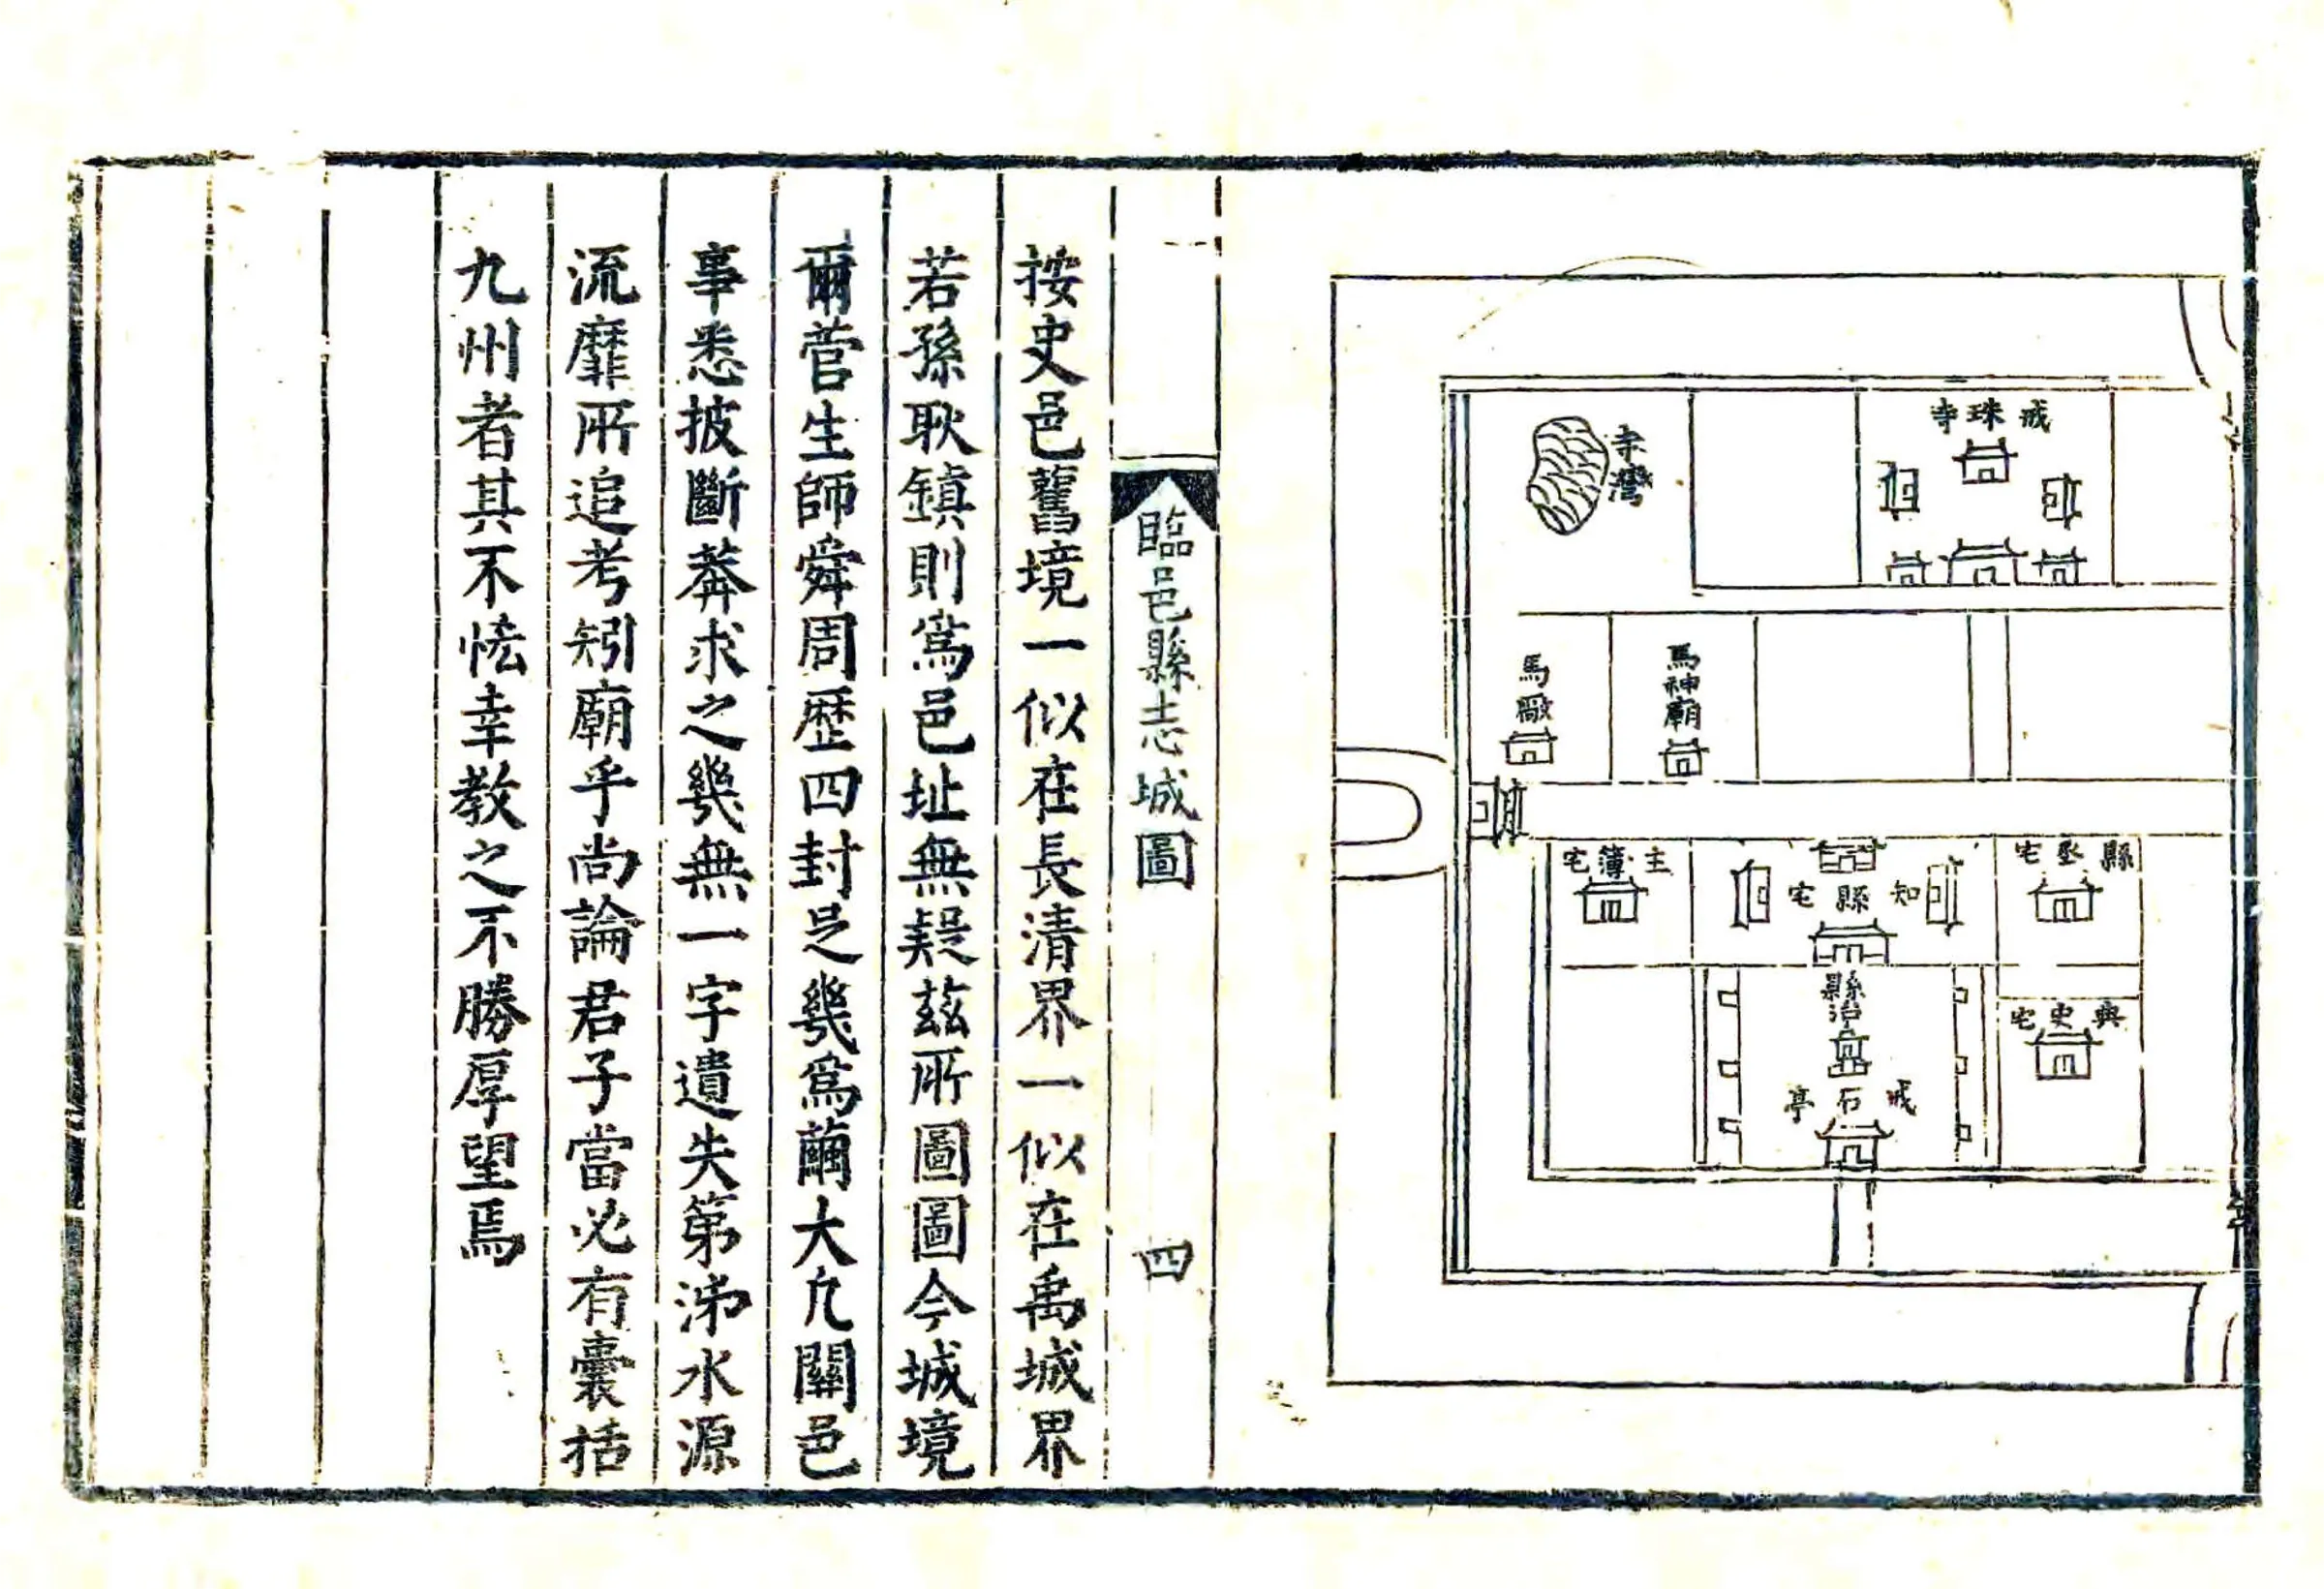 戒珠寺
宋灣
馬神廟
馬廠
縣丞宅
知縣宅
主簿宅
縣治
典史宅
戒石亭
臨邑縣志城圖
四
按史邑舊境一似在長清界一似在禹城界
若孫耿鎮則爲邑址無疑茲所圖圖今城境
爾菅生師舜周歴四封足幾爲繭大凢關邑
事悉披斷莾求之幾無一字遺失第沛水源
流靡所追考矧廟乎尚論君子當必有囊括
九州者其不恡幸教之不勝厚望焉